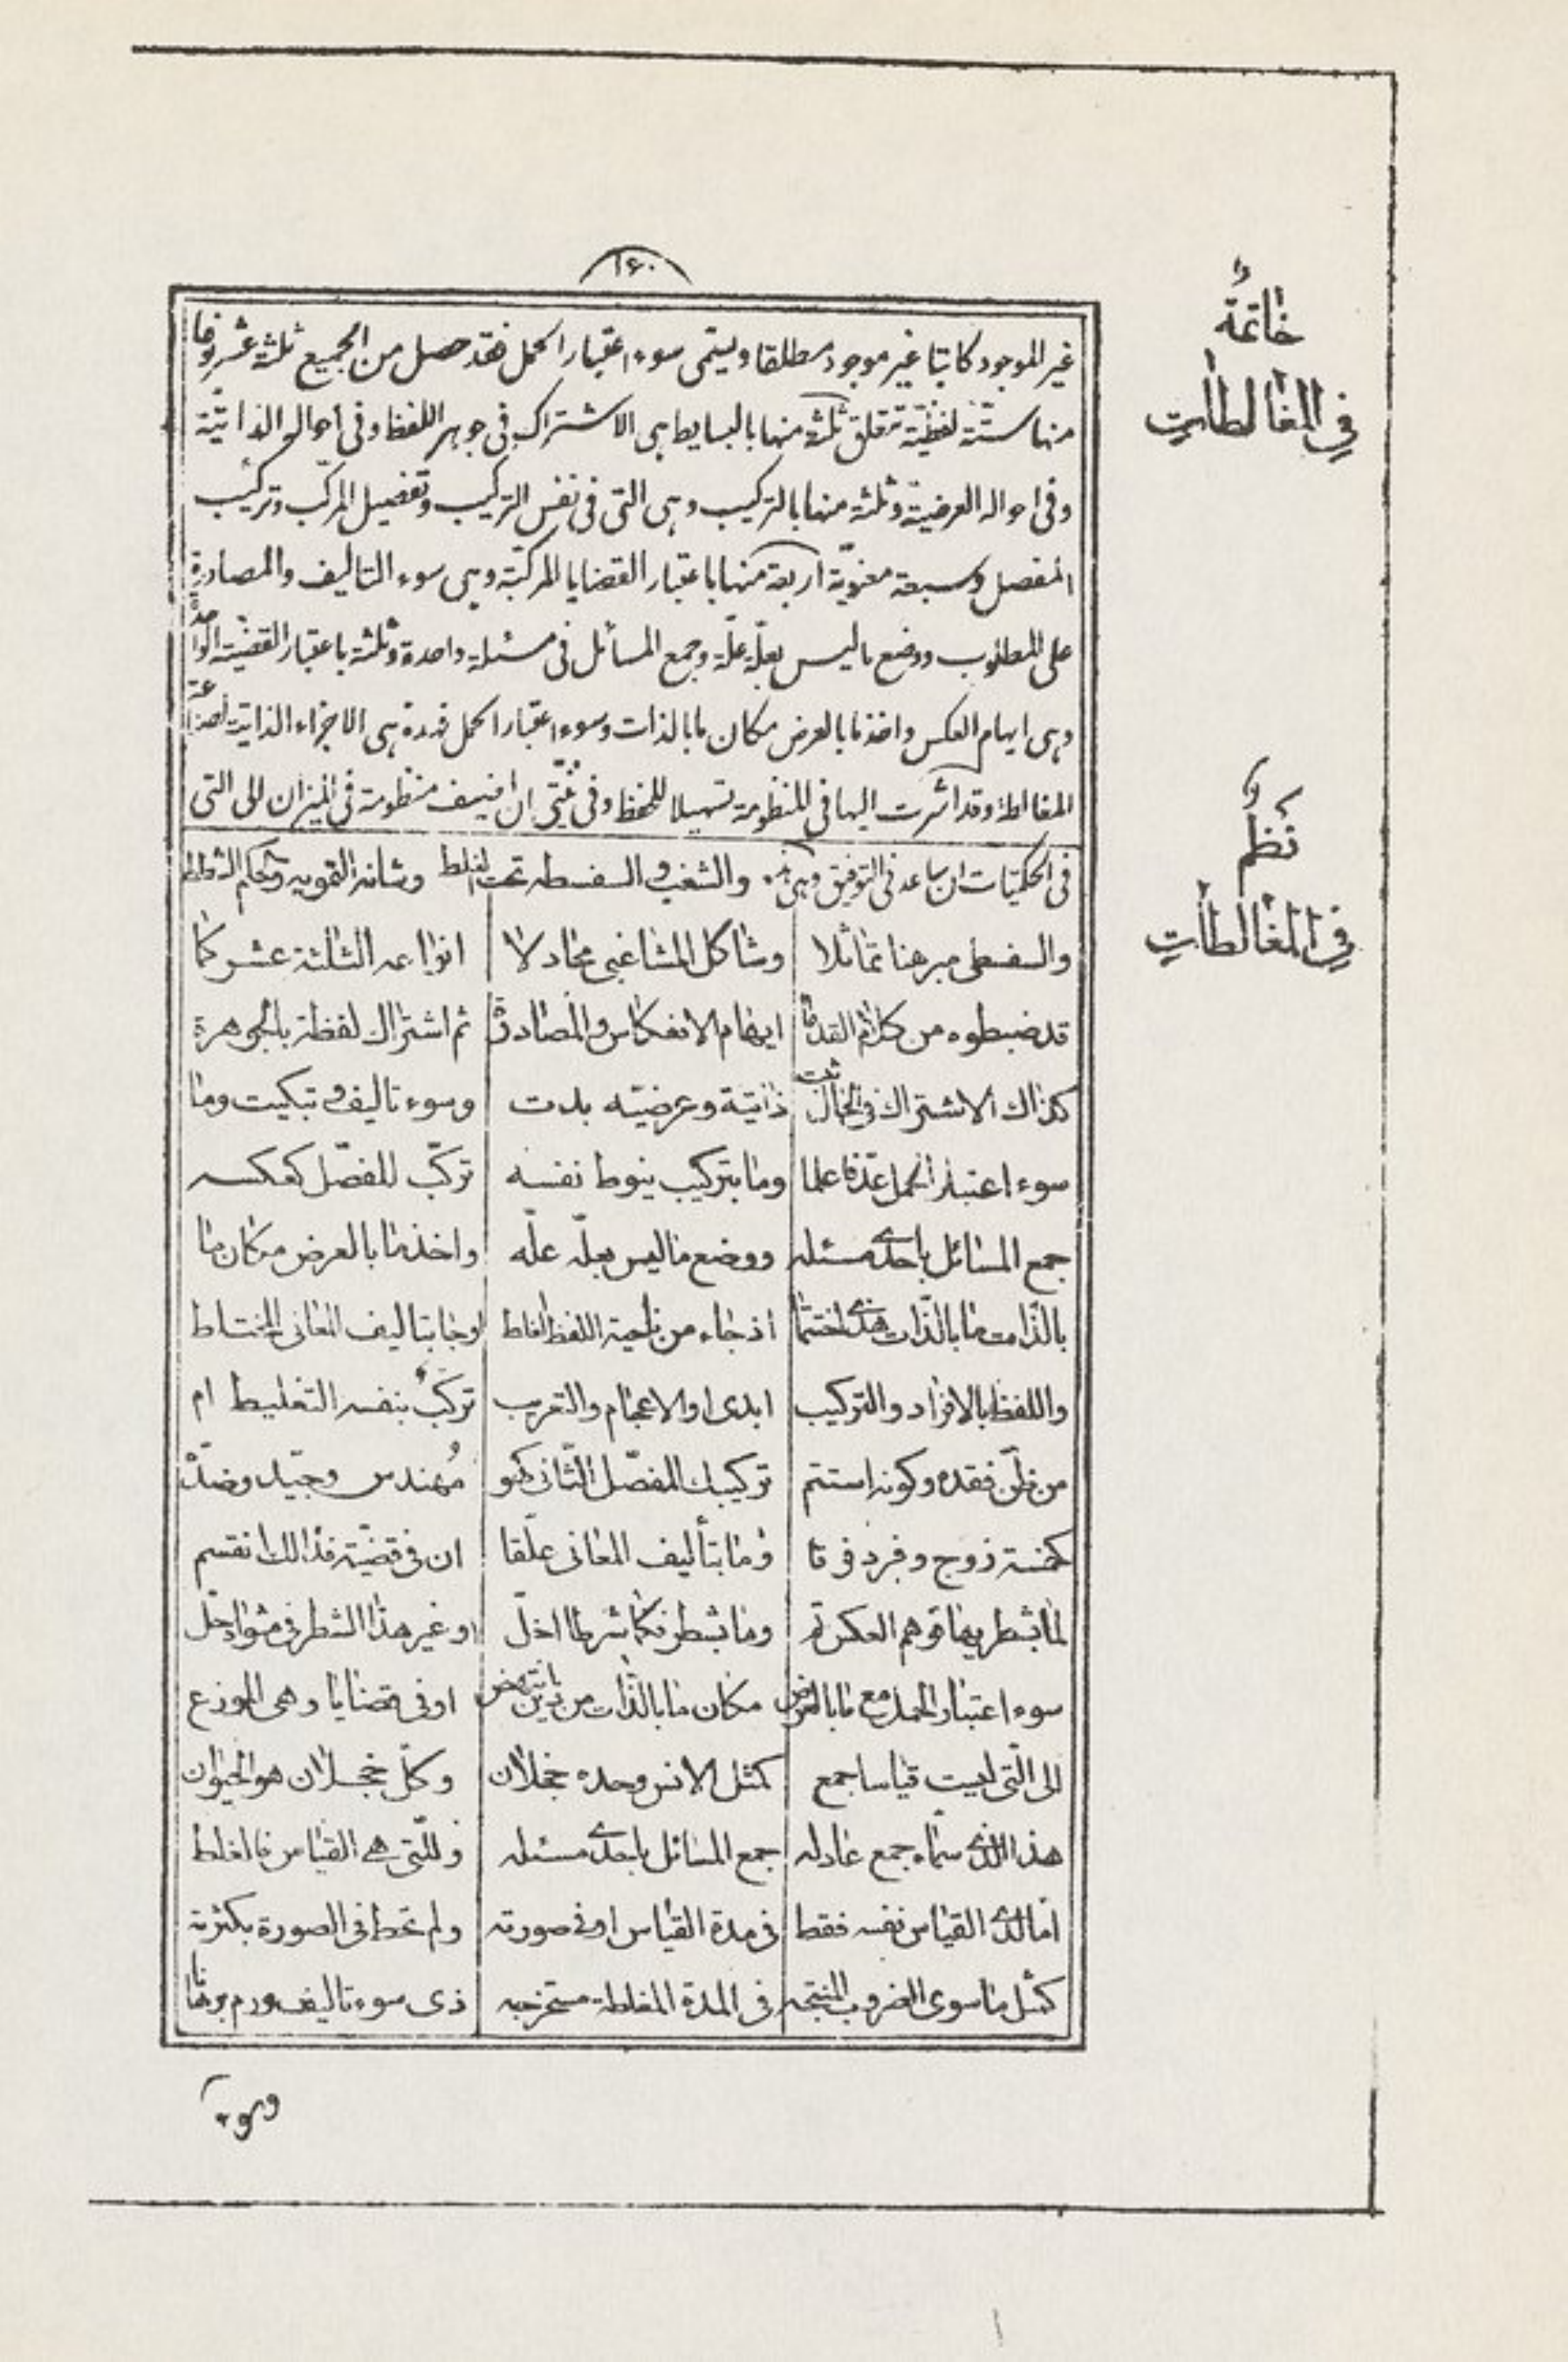 ۱۶۰
خاتمة
في المغالطات
غير الموجود كاتبا غير موجود مطلقا ويسمى سوء اعتبار الحمل فقد حصل من الجميع ثلثة عشر نوعا
منها ستّة لفظيّة تتعلق ثلثة منها بالبسايط هى الاشتراك فى جوهر اللفظ وفى احواله الذاتيّة
وفى احواله العرضية وثلثة منها بالتركيب وهى التى فى نفس التركيب وتفصيل المركّب وتركيب
المفصل وسبعة معنويّة اربعة منها باعتبار القضايا المركبّة وهى سوء التاليف والمصادرة
على المطلوب ووضع ماليس بعلّة علّة وجمع المسائل فى مسئلة واحدة وثلثة باعتبار القضيّة الواحدة
وهى ايهام العكس واخذ ما بالعرض مكان ما بالذات وسوء اعتبار الحمل فهذه هى الاجزاء الذاتية لصناعة
المغالطة وقد اشرت اليها فى المنظومة تسهيلا للحفظ وفى نيّتى ان اضيف منظومة فى الميزان الى التى
نظم
في المغالطات
فى الحكميّات ان ساعدنى التوفيق وهى هذه والشغب والسفسطه تحت الغلط وشانه التمويه
والسفسطى مبرهنا تماثلا وشاكل المشاغبى مجادلا انواعه الثلثة عشر كما
قد ضبطوه من كلام القدما ايهام الانعكاس والمصادرة ثم اشتراك لفظة بالجوهرة
كذاك الاشتراك فى الحالات ثبت ذاتية وعرضيّه بدت وسوء تاليف وتبكيت وما
سوء اعتبار الحمل عندنا علما وما بتركيب ينوط نفسه تركّب المفصّل كعكسه
جمع المسائل باحدى مسئله ووضع ما ليس بعلّه علّه واخذ ما بالعرض مكان ما
بالذّات ما بالذّات هذى اختتما اذ جاء من ناحية اللفظ الغلط اوجا بتاليف المعانى اختلاط
واللفظ بالافراد والتركيب ابدى او الاعجام والتعريب تركّب بنفسه التغليط ام
من ظنّ فقده وكونه استتم تركيبك المفصّل الثّانى كهو مُهندس وجيّد وضدّه
كخمسة زوج وفرد فرقا وما بتأليف المعانى علّقا ان فى قضيّة فذالك انقسم
لما بشطريها توهم العكس تم وما بشطر فكما شرطا اخلّ او غير هذا الشطر فى مثواه حلّ
سوء اعتبار الحمل مع ما بالعرض مكان ما بالذّات من ذين انتهض او فى قضايا وهى الموزع
الى الّتى ليست قياسا جمع كمثل الانس وحده خجلان وكلّ خجلان هو الحيوان
هذا الذى سمّاه جمع عادله جمع المسائل باحدى مسئله وللّتى هى القياس فالغلط
امّا لدى القياس نفسه فقط فى مدة القياس او فى صورته ولم تحط فى الصورة بكثرته
كمثل ما سوى الضروب المنتجه فى المدة المغلطة مستخرجه ذى سوء تاليف ورم برهانا
وسوء